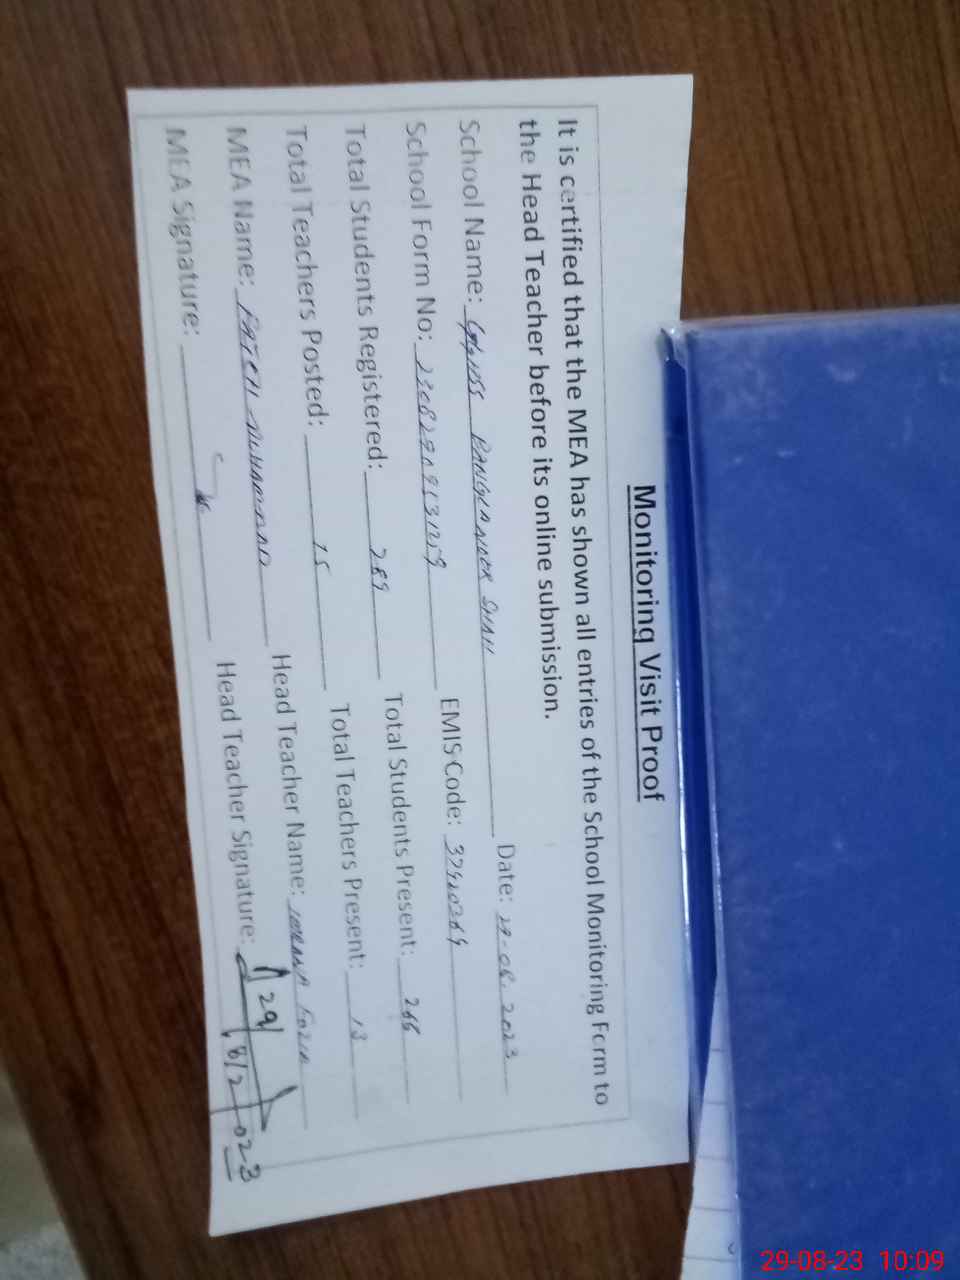 Monitoring Visit Proof
It is certified that the MEA has shown all entries of the School Monitoring Form to
the Head Teacher before its online submission.
School Name: SHAH Date: 29-08-2023
School Form No: EMIS Code:
Total Students Registered: 289 Total Students Present: 266
Total Teachers Posted: 15 Total Teachers Present: 13
MEA Name: FATEH MUHAMMAD Head Teacher Name:
MEA Signature: Head Teacher Signature:
29/8/2023
29-08-23 10:09